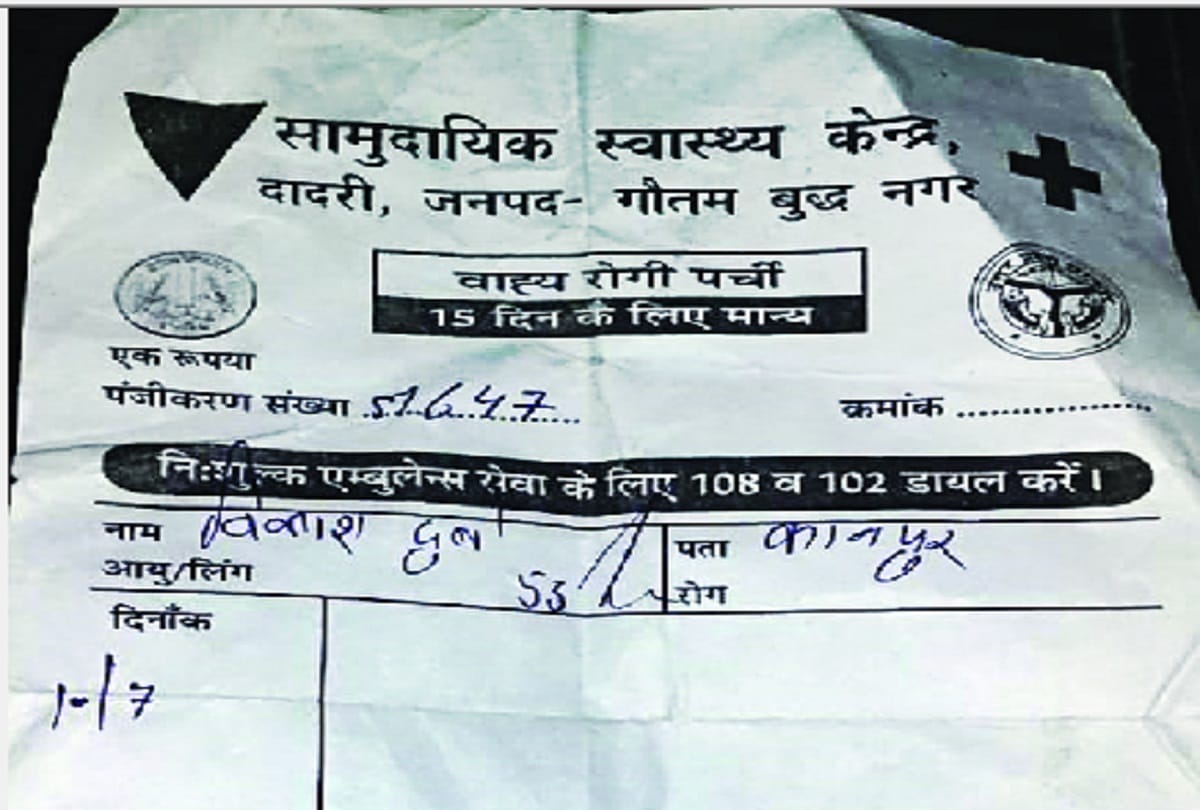 सामुदायिक स्वास्थ्य केन्द्र,
दादरी, जनपद- गौतम बुद्ध नगर
वाह्य रोगी पर्ची
15 दिन के लिए मान्य
एक रूपया
पंजीकरण संख्या 51647 क्रमांक ..................
निःशुल्क एम्बुलेन्स सेवा के लिए 108 व 102 डायल करें।
नाम विकाश पता कानपुर
आयु/लिंग 53 रोग
दिनाँक
10/7